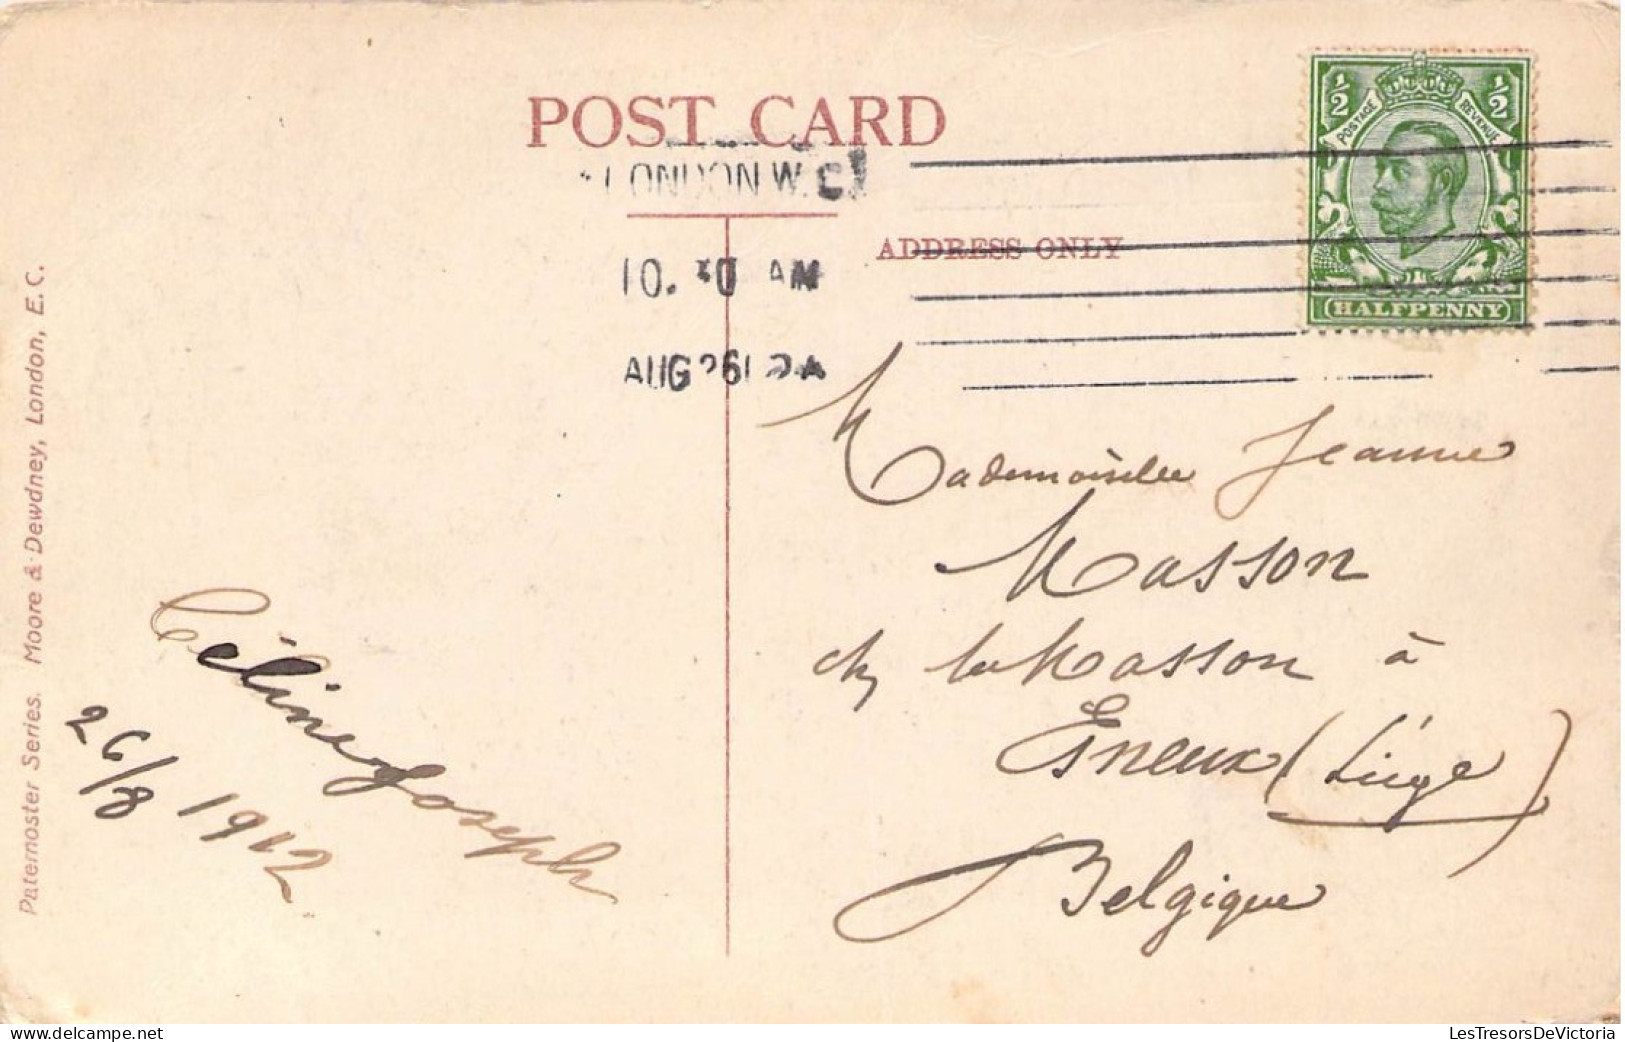 POST CARD
LONDON W.C
10. AM
AUG 26 12
ADDRESS ONLY
1/2 1/2
POSTAGE REVENUE
HALFPENNY
Mademoiselle Jeanne
Masson
Masson à
Esneux (Liége)
Belgique
Céline Joseph
26/8 1912
Paternoster Series. Moore & Dewdney, London, E.C.
www.delcampe.net
LesTresorsDeVictoria